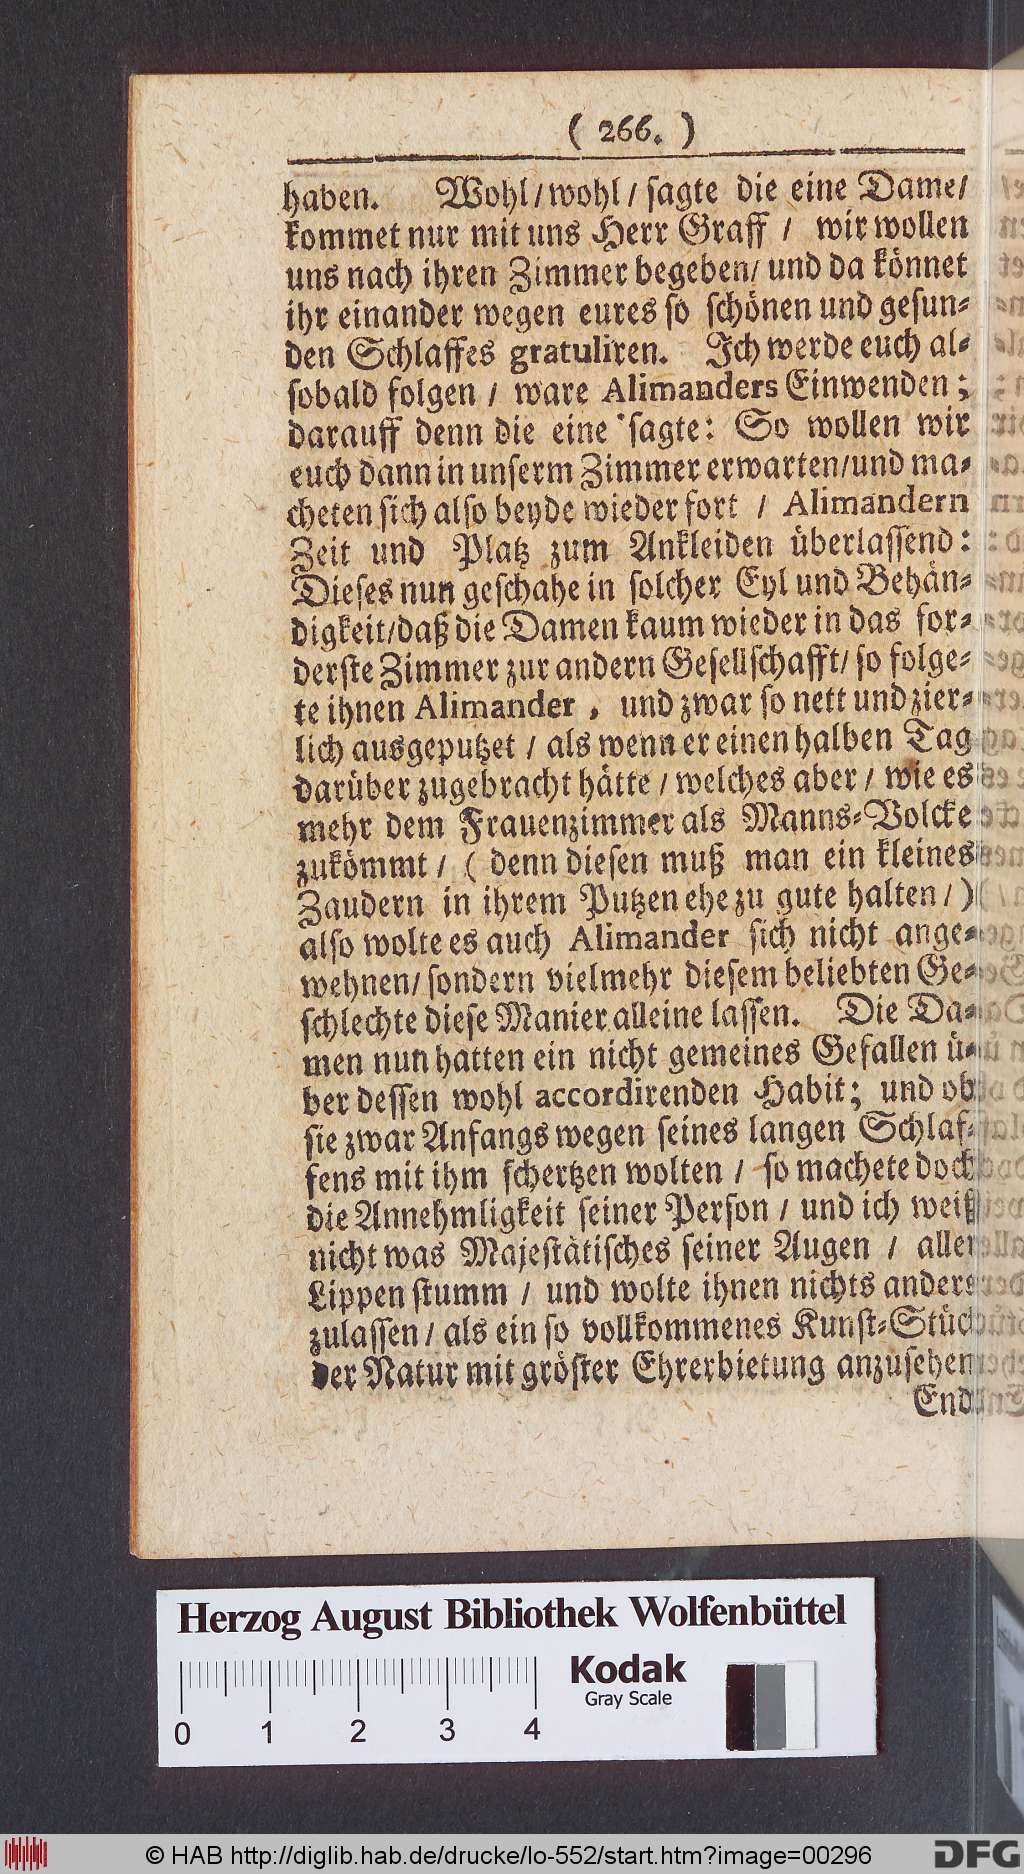 ( 266. )
haben. Wohl/wohl/ sagte die eine Dame/
kommet nur mit uns Herr Graff / wir wollen
uns nach ihren Zimmer begeben/ und da könnet
ihr einander wegen eures so schönen und gesun-
den Schlaffes gratuliren. Ich werde euch al-
sobald folgen / ware Alimanders Einwenden;
darauff denn die eine sagte: So wollen wir
euch dann in unserm Zimmer erwarten/und ma-
cheten sich also beyde wieder fort / Alimandern
Zeit und Platz zum Ankleiden überlassend:
Dieses nun geschahe in solcher Eyl und Behän-
digkeit/daß die Damen kaum wieder in das for-
derste Zimmer zur andern Gesellschafft/ so folge-
te ihnen Alimander, und zwar so nett und zier-
lich ausgeputzet / als wenn er einen halben Tag
darüber zugebracht hätte / welches aber / wie es
mehr dem Frauenzimmer als Manns-Volcke
zukömmt / ( denn diesen muß man ein kleines
Zaudern in ihrem Putzen ehe zu gute halten / )
also wolte es auch Alimander sich nicht ange-
wehnen/ sondern vielmehr diesem beliebten Ge-
schlechte diese Manier alleine lassen. Die Da-
men nun hatten ein nicht gemeines Gefallen ü-
ber dessen wohl accordirenden Habit; und ob
sie zwar Anfangs wegen seines langen Schlaf-
fens mit ihm schertzen wolten / so machete doch
die Annehmligkeit seiner Person / und ich weiß
nicht was Majestätisches seiner Augen / aller
Lippen stumm / und wolte ihnen nichts anders
zulassen / als ein so vollkommenes Kunst-Stück
der Natur mit gröster Ehrerbietung anzusehen
End
Herzog August Bibliothek Wolfenbüttel
Kodak
Gray Scale
0 1 2 3 4
© HAB http://diglib.hab.de/drucke/lo-552/start.htm?image=00296
DFG